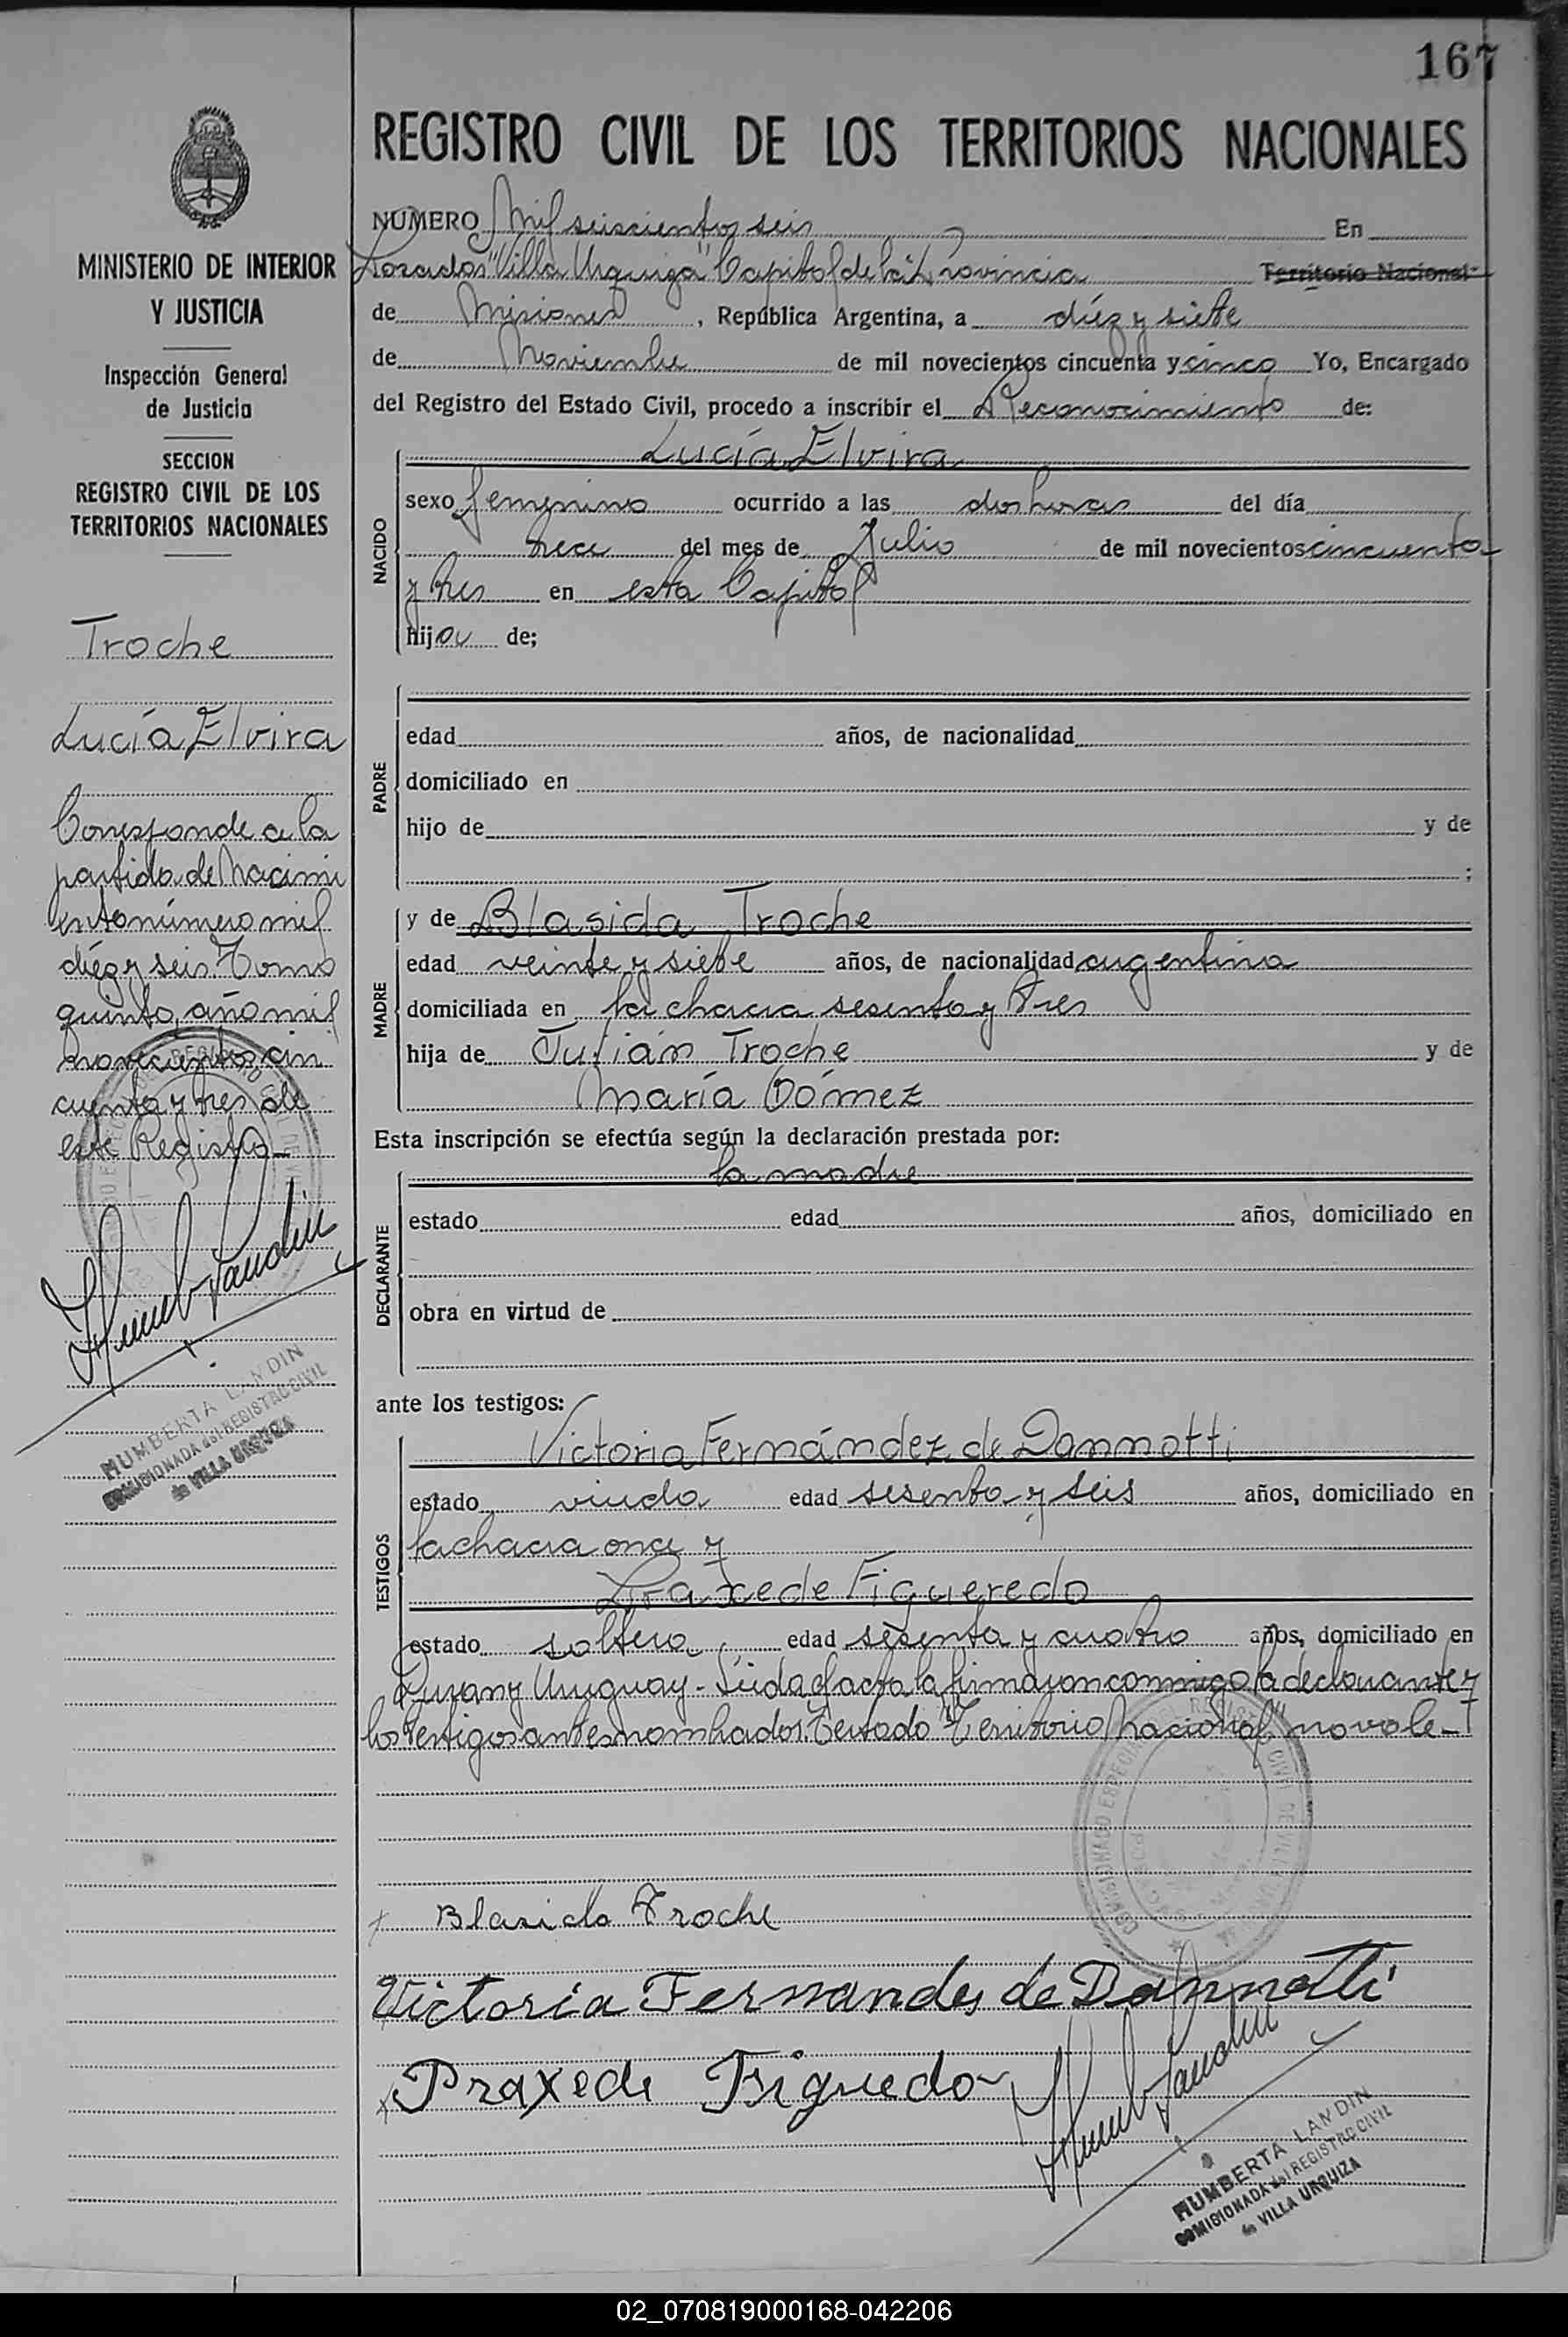 167
REGISTRO CIVIL DE LOS TERRITORIOS NACIONALES
NUMERO Mil seiscientos seis En
Posadas "Villa Urquiza" Capital de la Provincia Territorio Nacional
de Misiones, República Argentina, a diéz y siete
de Noviembre de mil novecientos cincuenta y cinco Yo, Encargado
del Registro del Estado Civil, procedo a inscribir el Reconocimiento de:
NACIDO
Lucía Elvira
sexo femenino ocurrido a las dos horas del día
trece del mes de Julio de mil novecientos cincuenta
y tres en esta Capital
hija de;
PADRE
edad años, de nacionalidad
domiciliado en
hijo de y de
;
MADRE
y de Blasida Troche
edad veinte y siete años, de nacionalidad argentina
domiciliada en la chacra sesenta y tres
hija de Julián Troche y de
María Gómez
Esta inscripción se efectúa según la declaración prestada por:
DECLARANTE
la madre
estado edad años, domiciliado en
obra en virtud de
ante los testigos:
TESTIGOS
Victoria Fernández de Dannotti
estado viuda edad sesenta y seis años, domiciliado en
la chacra once y
Praxede Figueredo
estado soltero edad sesenta y cuatro años, domiciliado en
y Uruguay - Leída el acta la firmaron conmigo la declarante y
los testigos antes nombrados. Testado "Territorio Nacional" no vale -
Blasida Troche
Victoria Fernandes de Dannotti
Praxede Figuedo
HUMBERTA LANDIN
COMISIONADA del REGISTRO CIVIL
de VILLA URQUIZA
MINISTERIO DE INTERIOR
Y JUSTICIA
Inspección General
de Justicia
SECCION
REGISTRO CIVIL DE LOS
TERRITORIOS NACIONALES
Troche
Lucía Elvira
Corresponde a la
partida de Nacimi
ento número mil
diéz y seis Tomo
quinto, año mil
novecientos cin
cuenta y tres de
este Registro -
HUMBERTA LANDIN
COMISIONADA del REGISTRO CIVIL
de VILLA URQUIZA
02_070819000168-042206